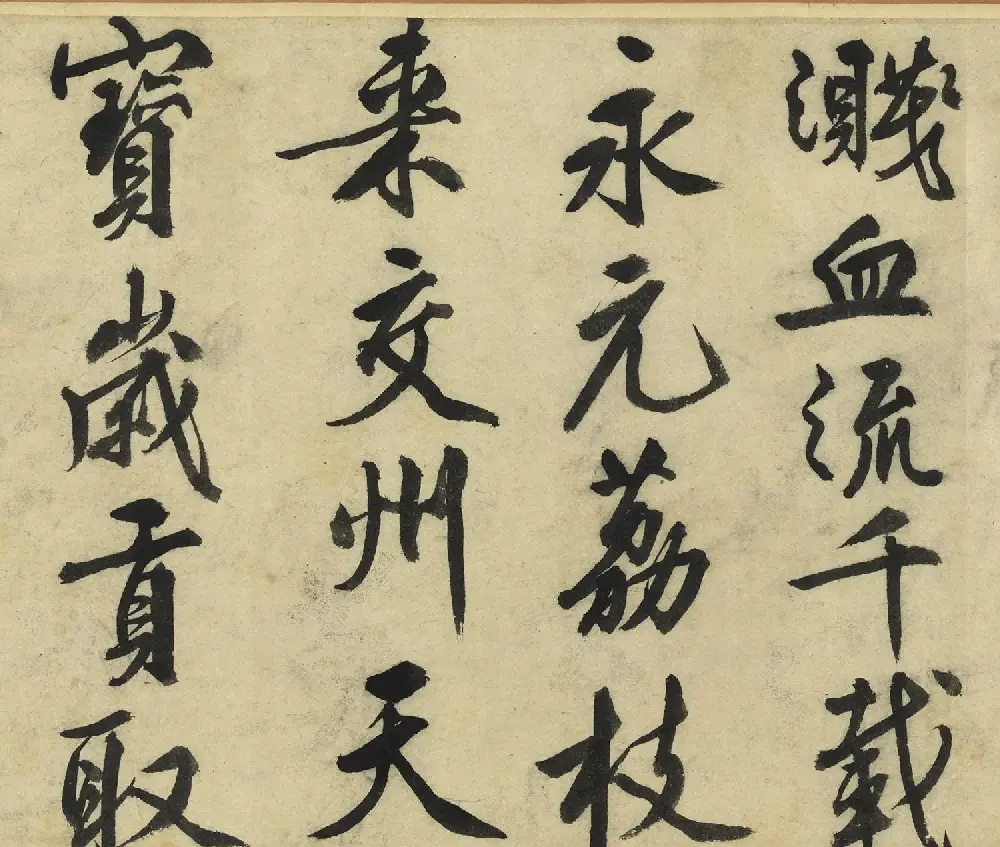 濺血流千載
永元荔枝
來交州天
寶歲貢取